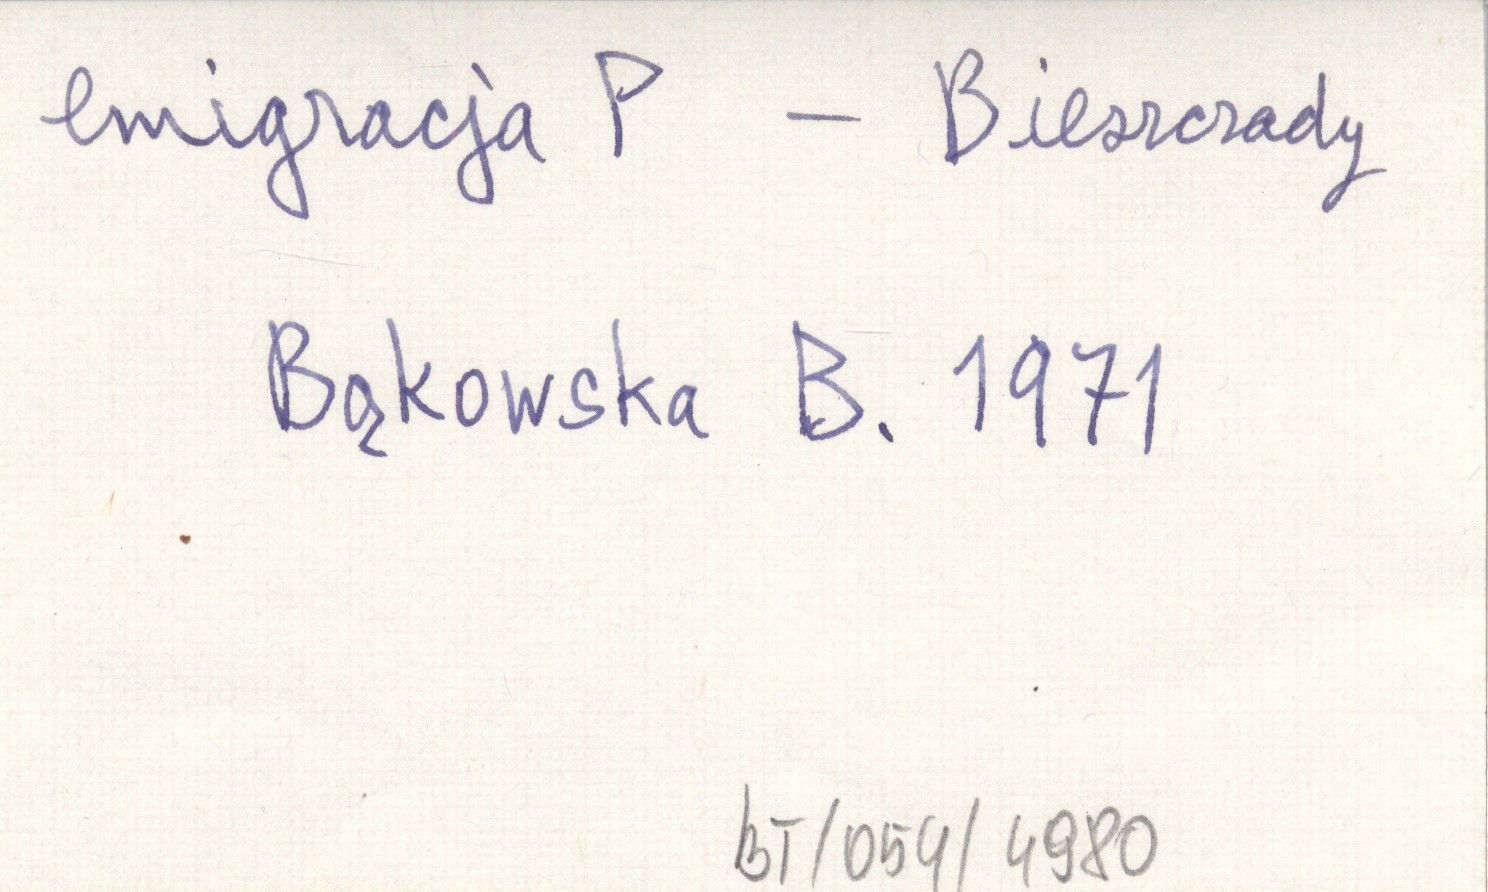 emigracja P – Bieszczady
Bąkowska B. 1971
BT/054/4980